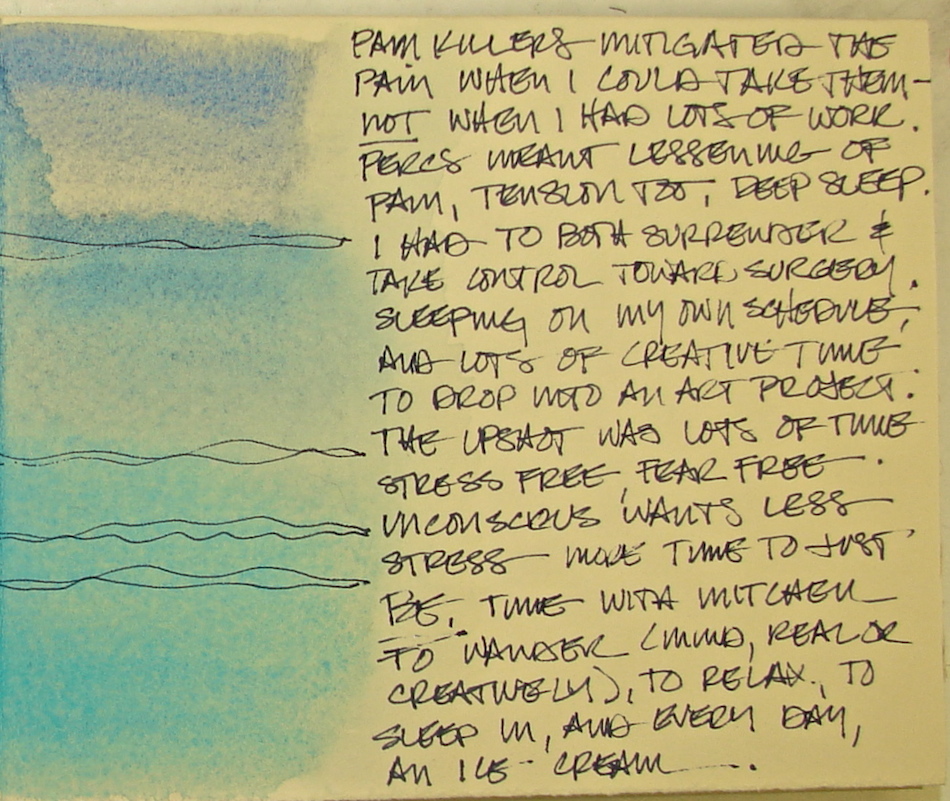 PAIN KILLERS MITIGATED THE
PAIN WHEN I COULD TAKE THEM-
NOT WHEN I HAD LOTS OF WORK.
PERCS MEANT LESSENING OF
PAIN, TENSION TOO, DEEP SLEEP.
I HAD TO BOTH SURRENDER &
TAKE CONTROL TOWARD SURGERY.
SLEEPING ON MY OWN SCHEDULE,
AND LOTS OF CREATIVE TIME
TO DROP INTO AN ART PROJECT.
THE UPSHOT WAS LOTS OF TIME
STRESS FREE, FEAR FREE.
UNCONSCIOUS WANTS LESS
STRESS - MORE TIME TO JUST
BE, TIME WITH MITCHELL
TO WANDER (MIND, REAL OR
CREATIVELY), TO RELAX, TO
SLEEP IN, AND EVERY DAY,
AN ICE CREAM.